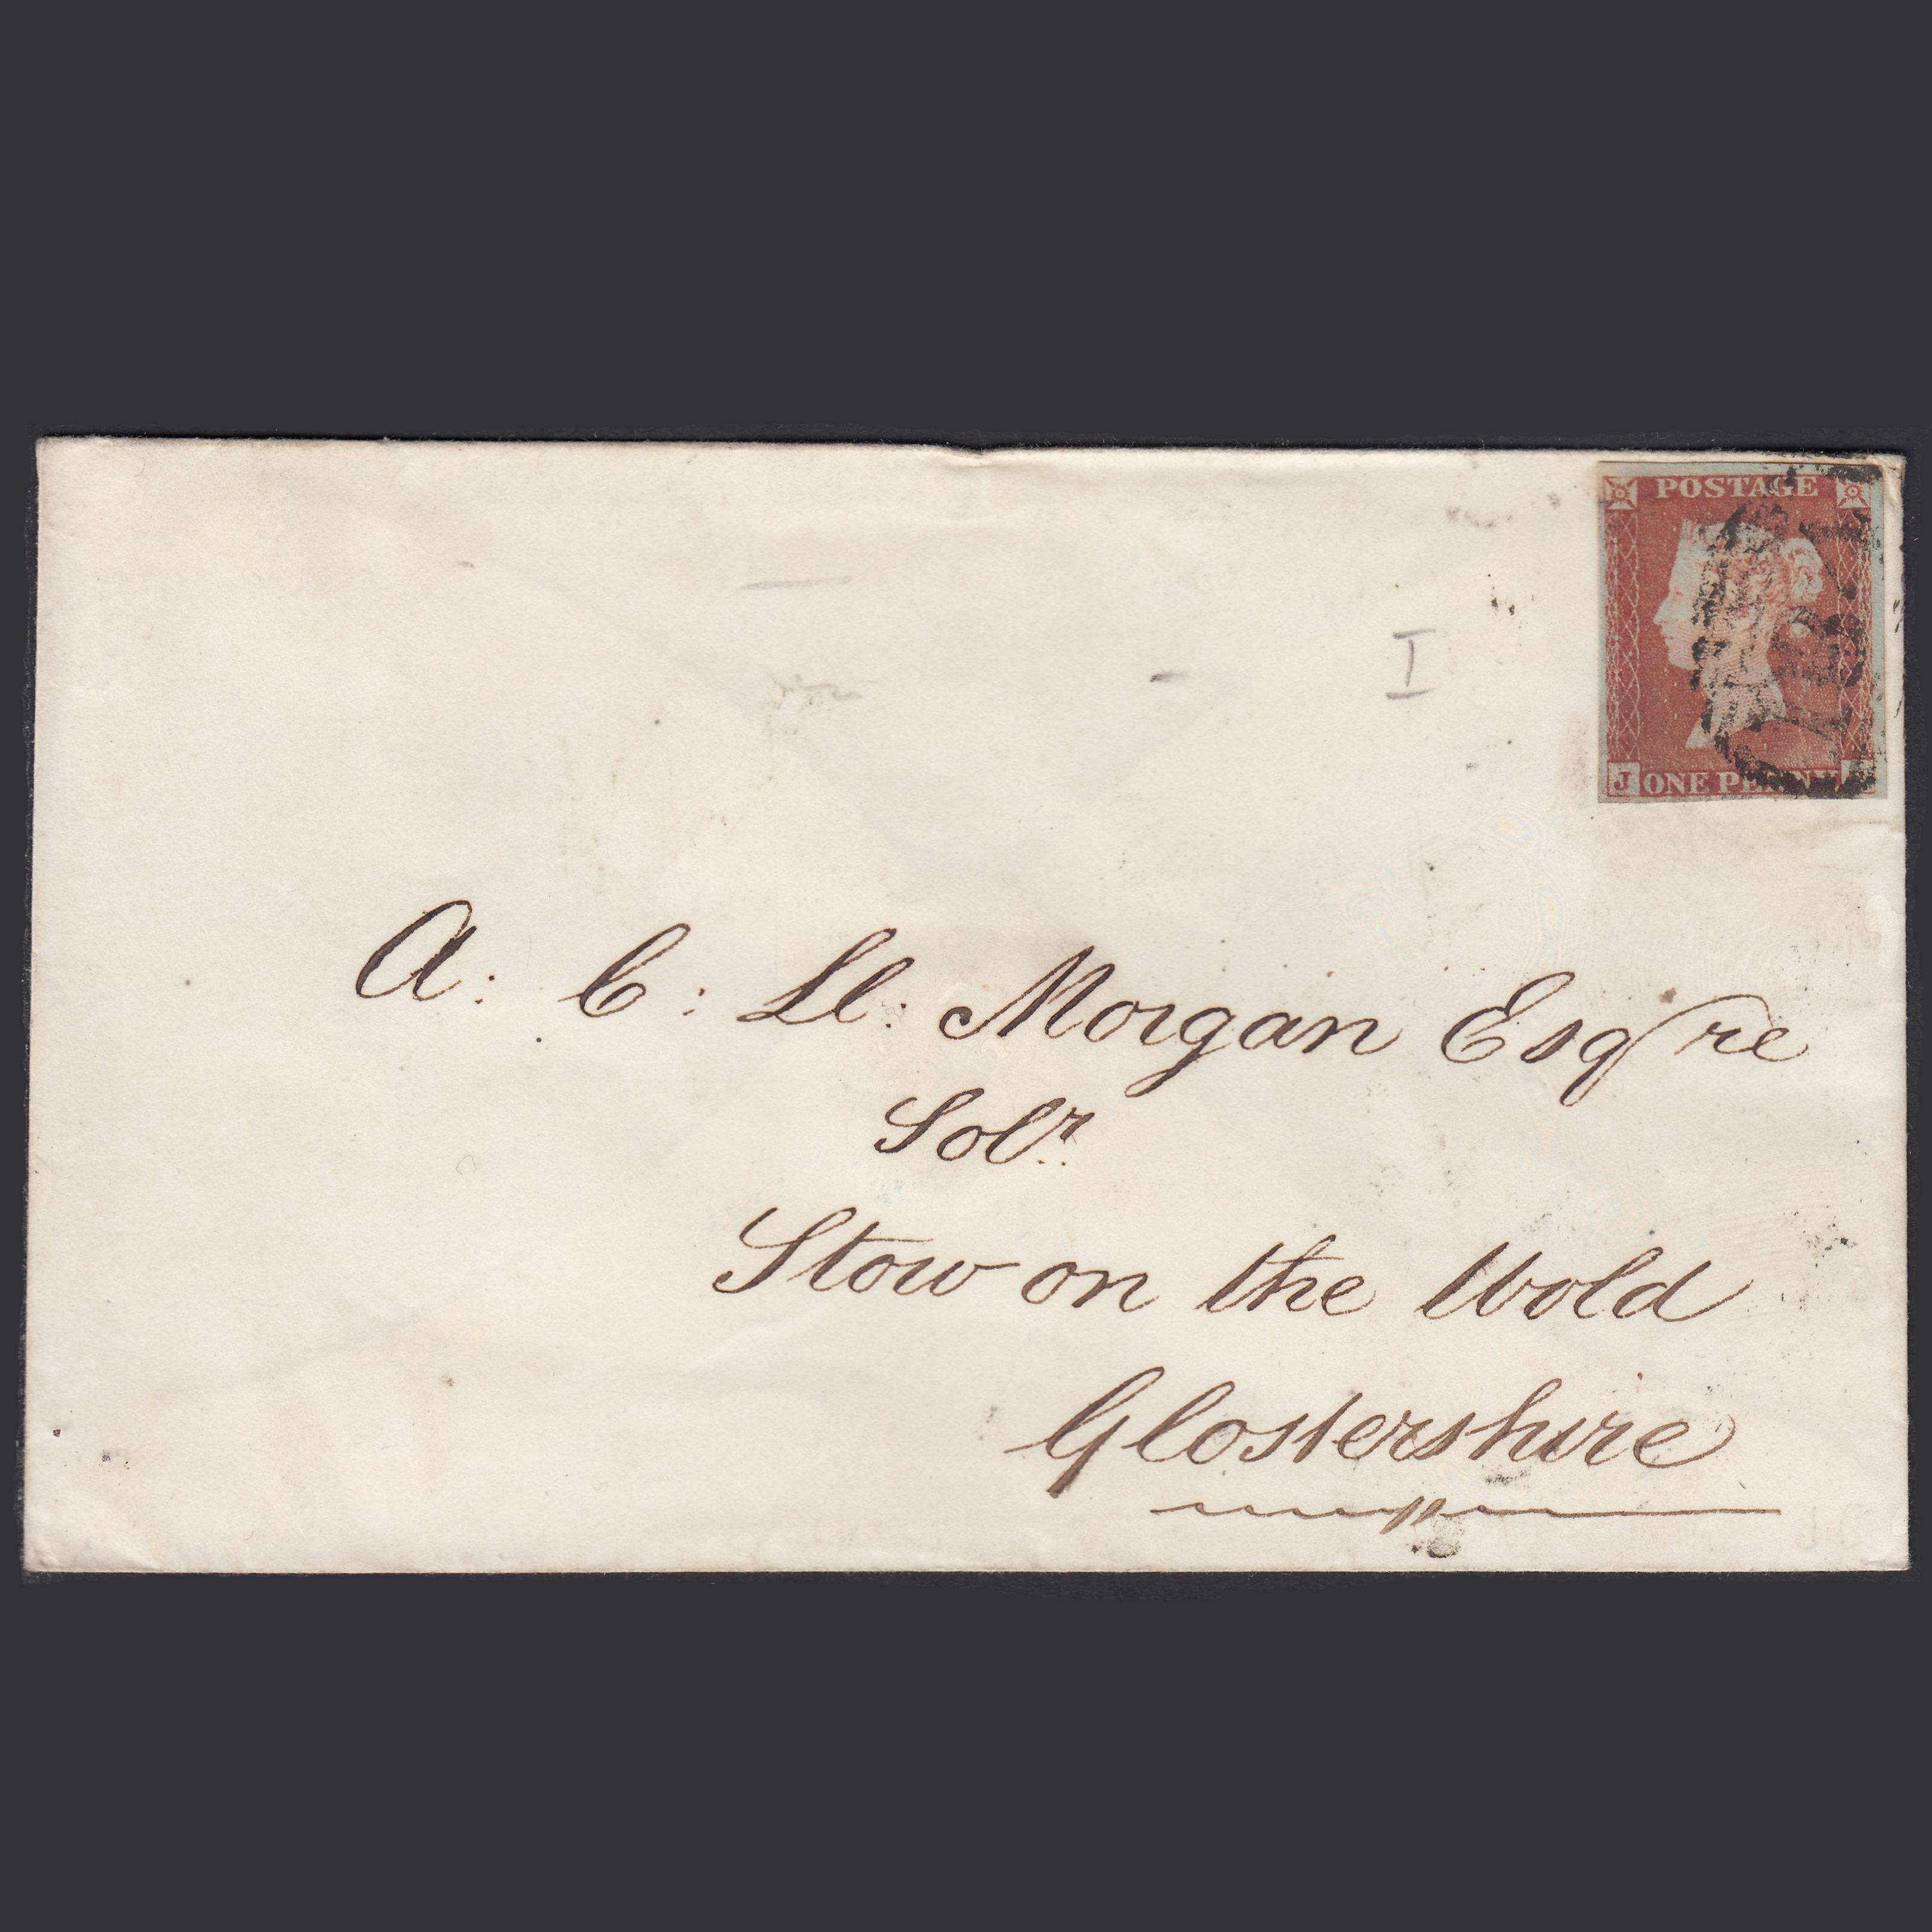 POSTAGE
J ONE PENNY
I
A: C: Ll: Morgan Esqre
Solr.
Stow on the Wold
Glostershire